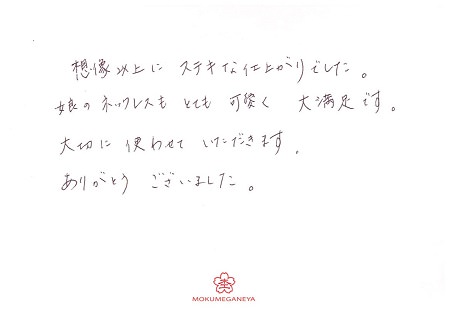 想像以上に ステキな仕上がりでした。
娘のネックレスも とても 可愛く 大満足です。
大切に 使わせて いただきます.
ありがとう ございました。
MOKUMEGANEYA